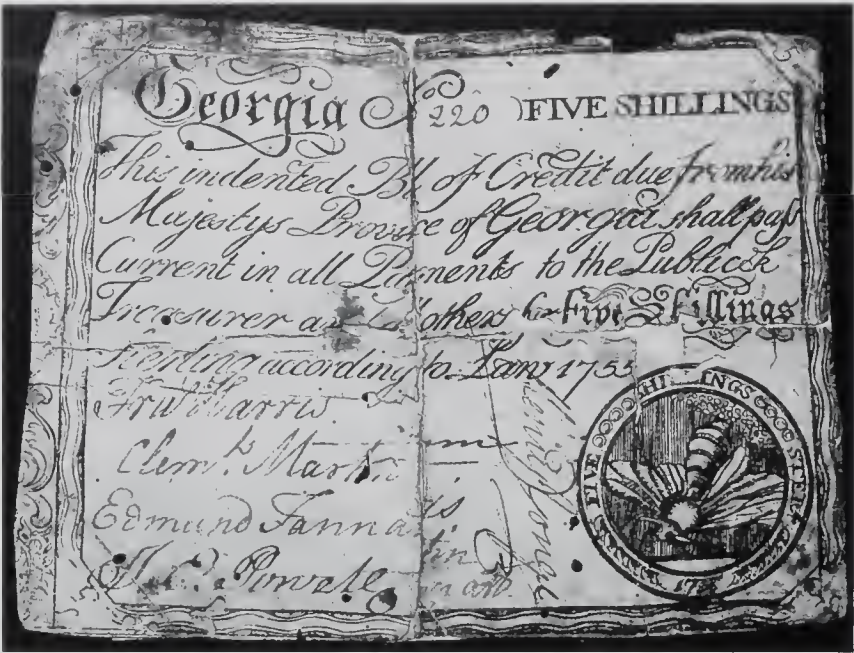 Georgia No 220 ) FIVE SHILLINGS
This indented Bill of Credit due from his
Majestys Province of Georgia shall pass
Current in all Payments to the Publick
Treasurer and others for Five Shillings
Sterling according to Law 1755
Fra Harris
Clemt. Martin
Edmund Tanna
Powell
FIVE SHILLINGS